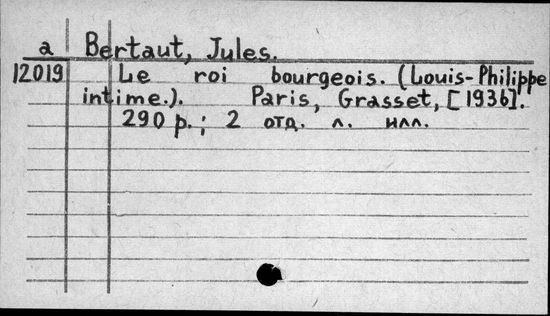 a Bertaut, Jules.
12019 Le roi bourgeois. (Louis-Philippe
intime.). Paris, Grasset, [1936].
290 p.; 2 отд. л. илл.